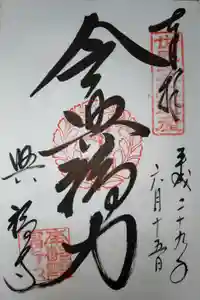 奉拝
平成二十九年
六月十五日
令興福力
興福寺